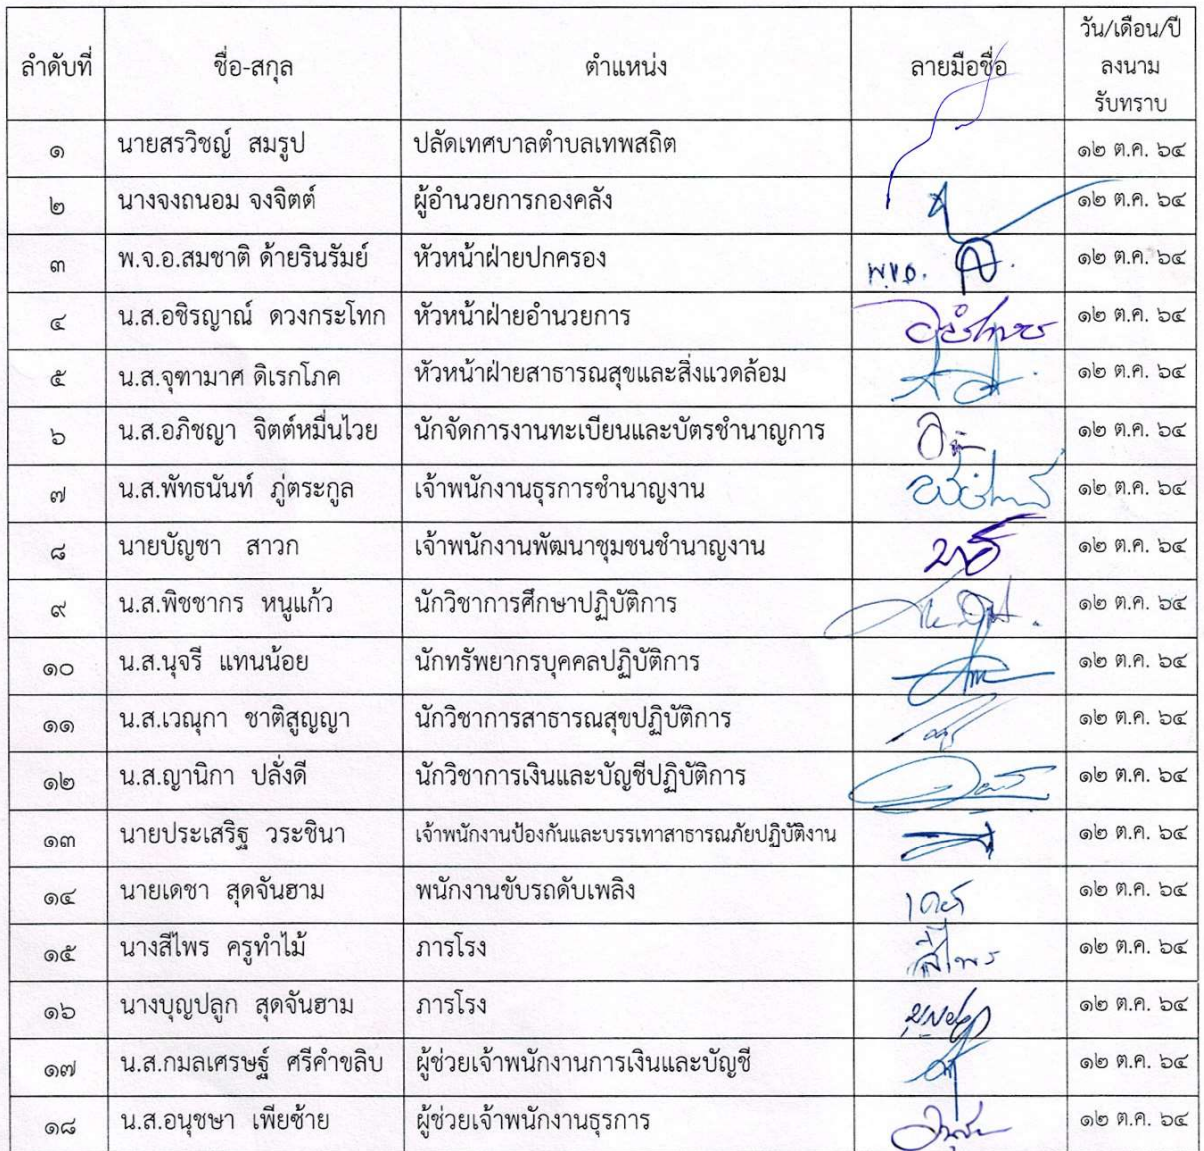 ลำดับที่ ชื่อ-สกุล ตำแหน่ง ลายมือชื่อ วัน/เดือน/ปี
ลงนาม
รับทราบ
๑ นายสรวิชญ์ สมรูป ปลัดเทศบาลตำบลเทพสถิต ๑๒ ต.ค. ๖๔
๒ นางจงถนอม จงจิตต์ ผู้อำนวยการกองคลัง ๑๒ ต.ค. ๖๔
๓ พ.จ.อ.สมชาติ ด้ายรินรัมย์ หัวหน้าฝ่ายปกครอง พ.จ.อ. ๑๒ ต.ค. ๖๔
๔ น.ส.อชิรญาณ์ ดวงกระโทก หัวหน้าฝ่ายอำนวยการ ๑๒ ต.ค. ๖๔
๕ น.ส.จุฑามาศ ดิเรกโภค หัวหน้าฝ่ายสาธารณสุขและสิ่งแวดล้อม ๑๒ ต.ค. ๖๔
๖ น.ส.อภิชญา จิตต์หมื่นไวย นักจัดการงานทะเบียนและบัตรชำนาญการ ๑๒ ต.ค. ๖๔
๗ น.ส.พัทธนันท์ ภู่ตระกูล เจ้าพนักงานธุรการชำนาญงาน ๑๒ ต.ค. ๖๔
๘ นายบัญชา สาวก เจ้าพนักงานพัฒนาชุมชนชำนาญงาน ๑๒ ต.ค. ๖๔
๙ น.ส.พิชชากร หนูแก้ว นักวิชาการศึกษาปฏิบัติการ ๑๒ ต.ค. ๖๔
๑๐ น.ส.นุจรี แทนน้อย นักทรัพยากรบุคคลปฏิบัติการ ๑๒ ต.ค. ๖๔
๑๑ น.ส.เวณุกา ชาติสูญญา นักวิชาการสาธารณสุขปฏิบัติการ ๑๒ ต.ค. ๖๔
๑๒ น.ส.ญานิกา ปลั่งดี นักวิชาการเงินและบัญชีปฏิบัติการ ๑๒ ต.ค. ๖๔
๑๓ นายประเสริฐ วระชินา เจ้าพนักงานป้องกันและบรรเทาสาธารณภัยปฏิบัติงาน ๑๒ ต.ค. ๖๔
๑๔ นายเดชา สุดจันฮาม พนักงานขับรถดับเพลิง เดชา ๑๒ ต.ค. ๖๔
๑๕ นางสีไพร ครูทำไม้ ภารโรง สีไพร ๑๒ ต.ค. ๖๔
๑๖ นางบุญปลูก สุดจันฮาม ภารโรง ๑๒ ต.ค. ๖๔
๑๗ น.ส.กมลเศรษฐ์ ศรีคำขลิบ ผู้ช่วยเจ้าพนักงานการเงินและบัญชี ๑๒ ต.ค. ๖๔
๑๘ น.ส.อนุชษา เพียซ้าย ผู้ช่วยเจ้าพนักงานธุรการ ๑๒ ต.ค. ๖๔